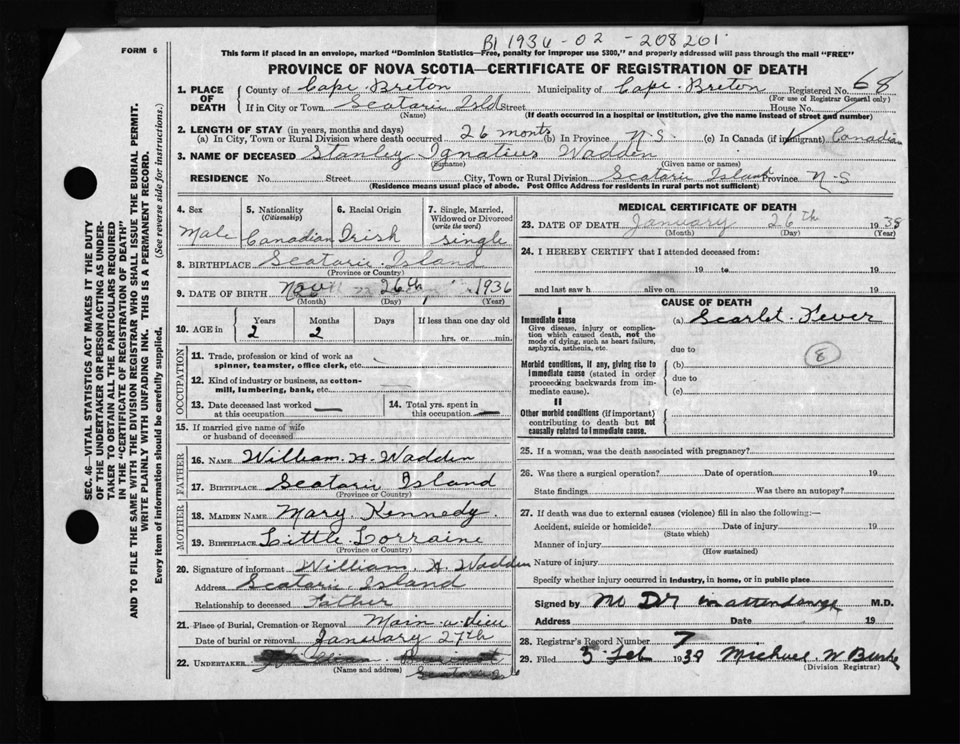 FORM 6
B1 1936-02-208201
This form if placed in an envelope, marked "Dominion Statistics—Free, penalty for improper use $300," and properly addressed will pass through the mail "FREE"
PROVINCE OF NOVA SCOTIA—CERTIFICATE OF REGISTRATION OF DEATH
1. PLACE OF DEATH
County of Cape Breton Municipality of Cape Breton Registered No. 68
(For use of Registrar General only)
If in City or Town Scatarie Isld Street House No.
(Name) (If death occurred in a hospital or institution, give the name instead of street and number)
2. LENGTH OF STAY (in years, months and days)
(a) In City, Town or Rural Division where death occurred 26 months (b) In Province N.S. (c) In Canada (if immigrant) Canadian
3. NAME OF DECEASED Stanley Ignatius Wadden
(Surname) (Given name or names)
RESIDENCE No. Street City, Town or Rural Division Scatarie Island Province N-S
(Residence means usual place of abode. Post Office Address for residents in rural parts not sufficient)
SEC. 46—VITAL STATISTICS ACT MAKES IT THE DUTY
OF THE UNDERTAKER OR PERSON ACTING AS UNDER-
TAKER TO OBTAIN ALL THE PARTICULARS REQUIRED
IN THE "CERTIFICATE OF REGISTRATION OF DEATH"
AND TO FILE THE SAME WITH THE DIVISION REGISTRAR WHO SHALL ISSUE THE BURIAL PERMIT.
WRITE PLAINLY WITH UNFADING INK. THIS IS A PERMANENT RECORD.
Every item of information should be carefully supplied. (See reverse side for instructions.)
4. Sex
Male
5. Nationality
(Citizenship)
Canadian
6. Racial Origin
Irish
7. Single, Married,
Widowed or Divorced
(write the word)
single
8. BIRTHPLACE Scatarie Island
(Province or Country)
9. DATE OF BIRTH Nov 26th 1936
(Month) (Day) (Year)
10. AGE in Years Months Days If less than one day old
2 2 hrs. or min.
OCCUPATION
11. Trade, profession or kind of work as
spinner, teamster, office clerk, etc.
12. Kind of industry or business, as cotton-
mill, lumbering, bank, etc.
13. Date deceased last worked
at this occupation
14. Total yrs. spent in
this occupation
15. If married give name of wife
or husband of deceased
FATHER
16. Name William H Wadden
17. Birthplace Scatarie Island
(Province or Country)
MOTHER
18. Maiden Name Mary Kennedy.
19. Birthplace Little Lorraine
(Province or Country)
20. Signature of informant William H Wadden
Address Scatarie Island
Relationship to deceased Father
21. Place of Burial, Cremation or Removal Main-a-dieu
Date of burial or removal January 27th
22. UNDERTAKER
(Name and address)
MEDICAL CERTIFICATE OF DEATH
23. DATE OF DEATH January 26th 1939
(Month) (Day) (Year)
24. I HEREBY CERTIFY that I attended deceased from:
19 to 19
and last saw h alive on 19
CAUSE OF DEATH
I
Immediate cause (a) Scarlet Fever
Give disease, injury or complica-
tion which caused death, not the
mode of dying, such as heart failure,
asphyxia, asthenia, etc.
due to
8
Morbid conditions, if any, giving rise to
immediate cause (stated in order
proceeding backwards from im-
mediate cause).
(b)
due to
(c)
II
Other morbid conditions (if important)
contributing to death but not
causally related to immediate cause.
25. If a woman, was the death associated with pregnancy?
26. Was there a surgical operation? Date of operation 19
State findings Was there an autopsy?
27. If death was due to external causes (violence) fill in also the following:—
Accident, suicide or homicide? Date of injury 19
(State which)
Manner of injury
(How sustained)
Nature of injury
Specify whether injury occurred in industry, in home, or in public place
Signed by no Dr in attendance M.D.
Address Date 19
28. Registrar's Record Number 7
29. Filed 5 Feb 1939 Michael W Burke
(Division Registrar)